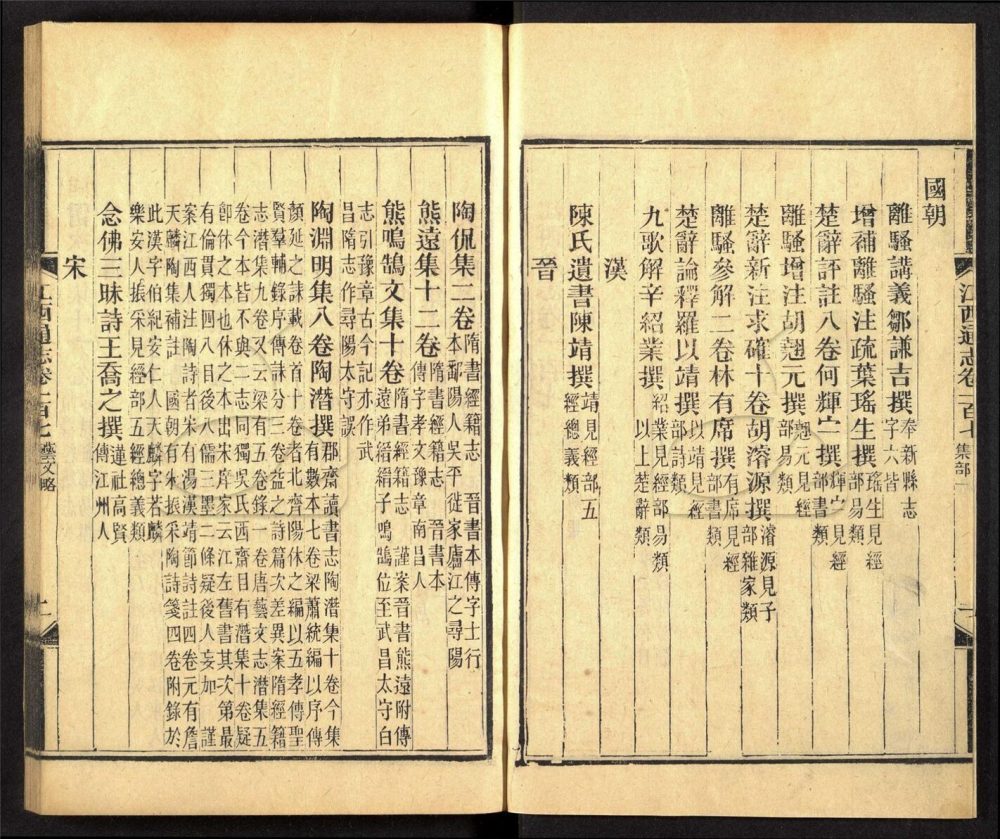 江西通志卷一百七 集部
國朝
離騷講義鄒謙吉撰 奉新縣志
字六皆
增補離騷注疏葉瑤生撰 瑤生見經
部易類
楚辭評註八卷何輝寧撰 輝寧見經
部書類
離騷增注胡翹元撰 翹元見經
部易類
楚辭新注求確十卷胡濬源撰 濬源見子
部雜家類
離騷參解二卷林有席撰 有席見經
部書類
楚辭論釋羅以靖撰 以靖見經
部詩類
九歌解辛紹業撰 紹業見經部易類
以上楚辭類
漢
陳氏遺書陳靖撰 靖見經部五
經總義類
晉
陶侃集二卷 隋書經籍志 晉書本傳字士行
本鄱陽人吳平徙家廬江之尋陽
熊遠集十二卷 隋書經籍志 晉書本
傳字孝文豫章南昌人
熊鳴鵠文集十卷 隋書經籍志 謹案晉書熊遠附傳
遠弟縉縉子鳴鵠位至武昌太守白
志引豫章古今記亦作武
昌隋志作尋陽太守誤
陶淵明集八卷陶潛撰 郡齋讀書志陶潛集十卷今集
有數本七卷梁蕭統編以序傳
顏延之誄載卷首十卷者北齊陽休之編以五孝傳聖
賢羣輔錄序傳誄分三卷益之詩篇次差異案隋經籍
志潛集九卷又云梁有五卷錄一卷唐藝文志潛集五
卷今本皆不與二志同獨吳氏西齋目有潛集十卷疑
卽休之本也休之本出宋庠家云江左舊書其次第最
有倫貫獨四八目後八儒三墨二條疑後人妄加 謹
案江西人注陶詩者宋有湯漢靖節詩註四卷元有詹
天麟陶集補註 國朝有朱振采陶詩箋四卷附錄於
此漢字伯紀安仁人天麟字若麟
樂安人振采見經部五經總義類
念佛三昧詩王喬之撰 蓮社高賢
傳江州人
宋
江西通志卷一百七 藝文略
二